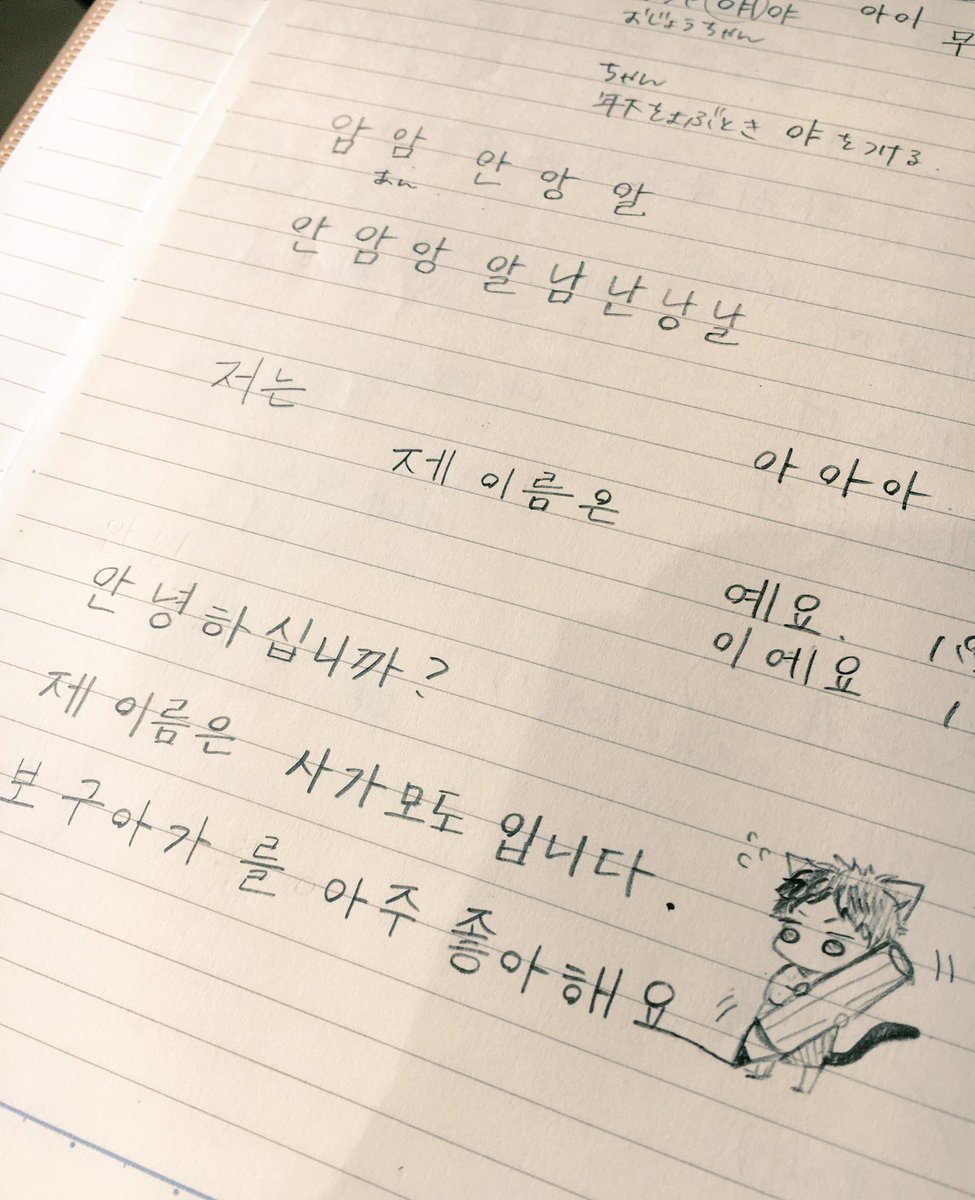 (야)야 아이
おじょうちゃん
무
ちゃん
年下をよぶとき 야 をつける
암 암 안 앙 알
まん
안 암 앙 알 남 난 낭 날
저는
제 이름은 아 아 아
예요.
이 에요
안녕하십니까?
제 이름은 사가모도 입니다.
보구아가 를 아주 좋아해요